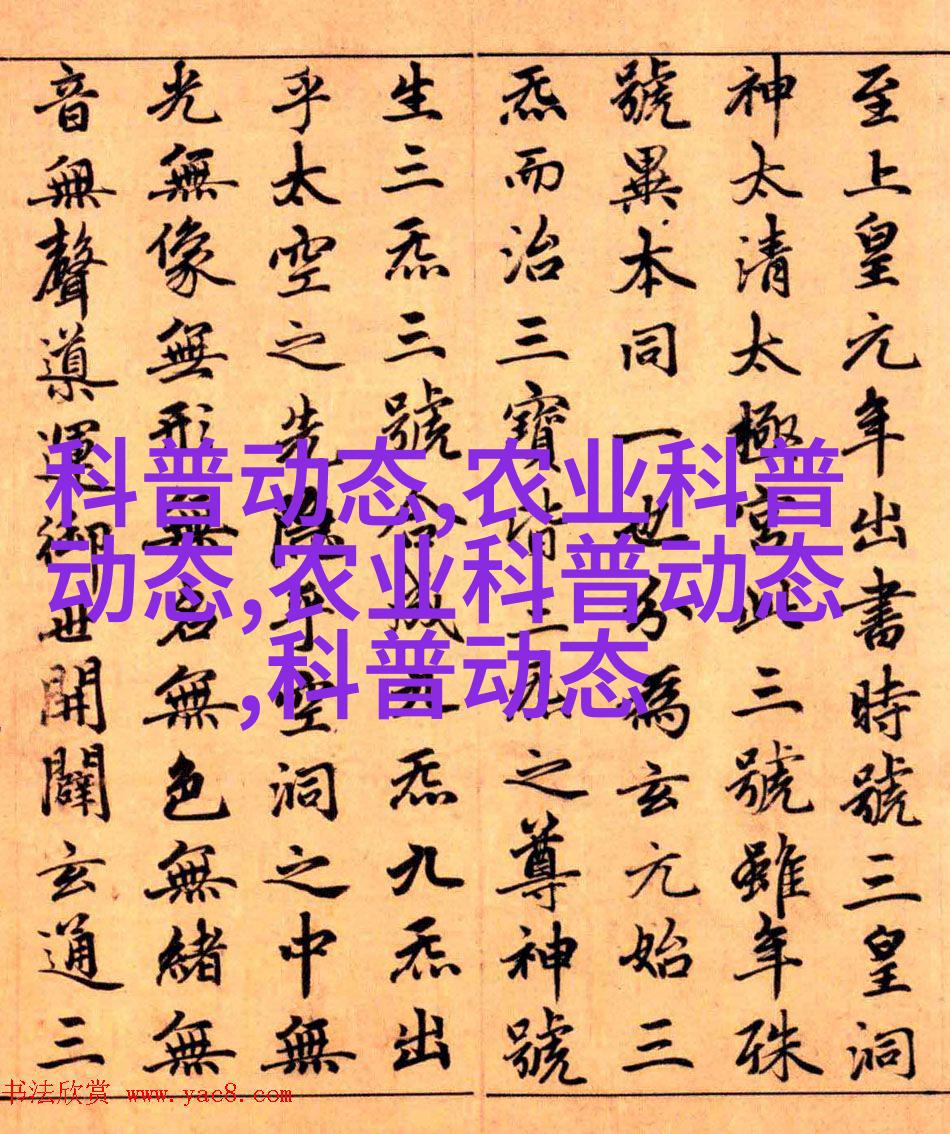 至上皇元年出書時號三皇洞
神太清太極宮此三號雖年殊
號異本同一也分為玄元始三
炁而治三寶皆三炁之尊神號
生三炁三號合成九炁九炁出
乎太空之先隱乎空洞之中無
光無像無形無名無色無緒無
音無聲導運御世開闢玄通三
科普动态,农业科普
动态,农业科普动态
,科普动态
书法欣赏 www.yac8.com